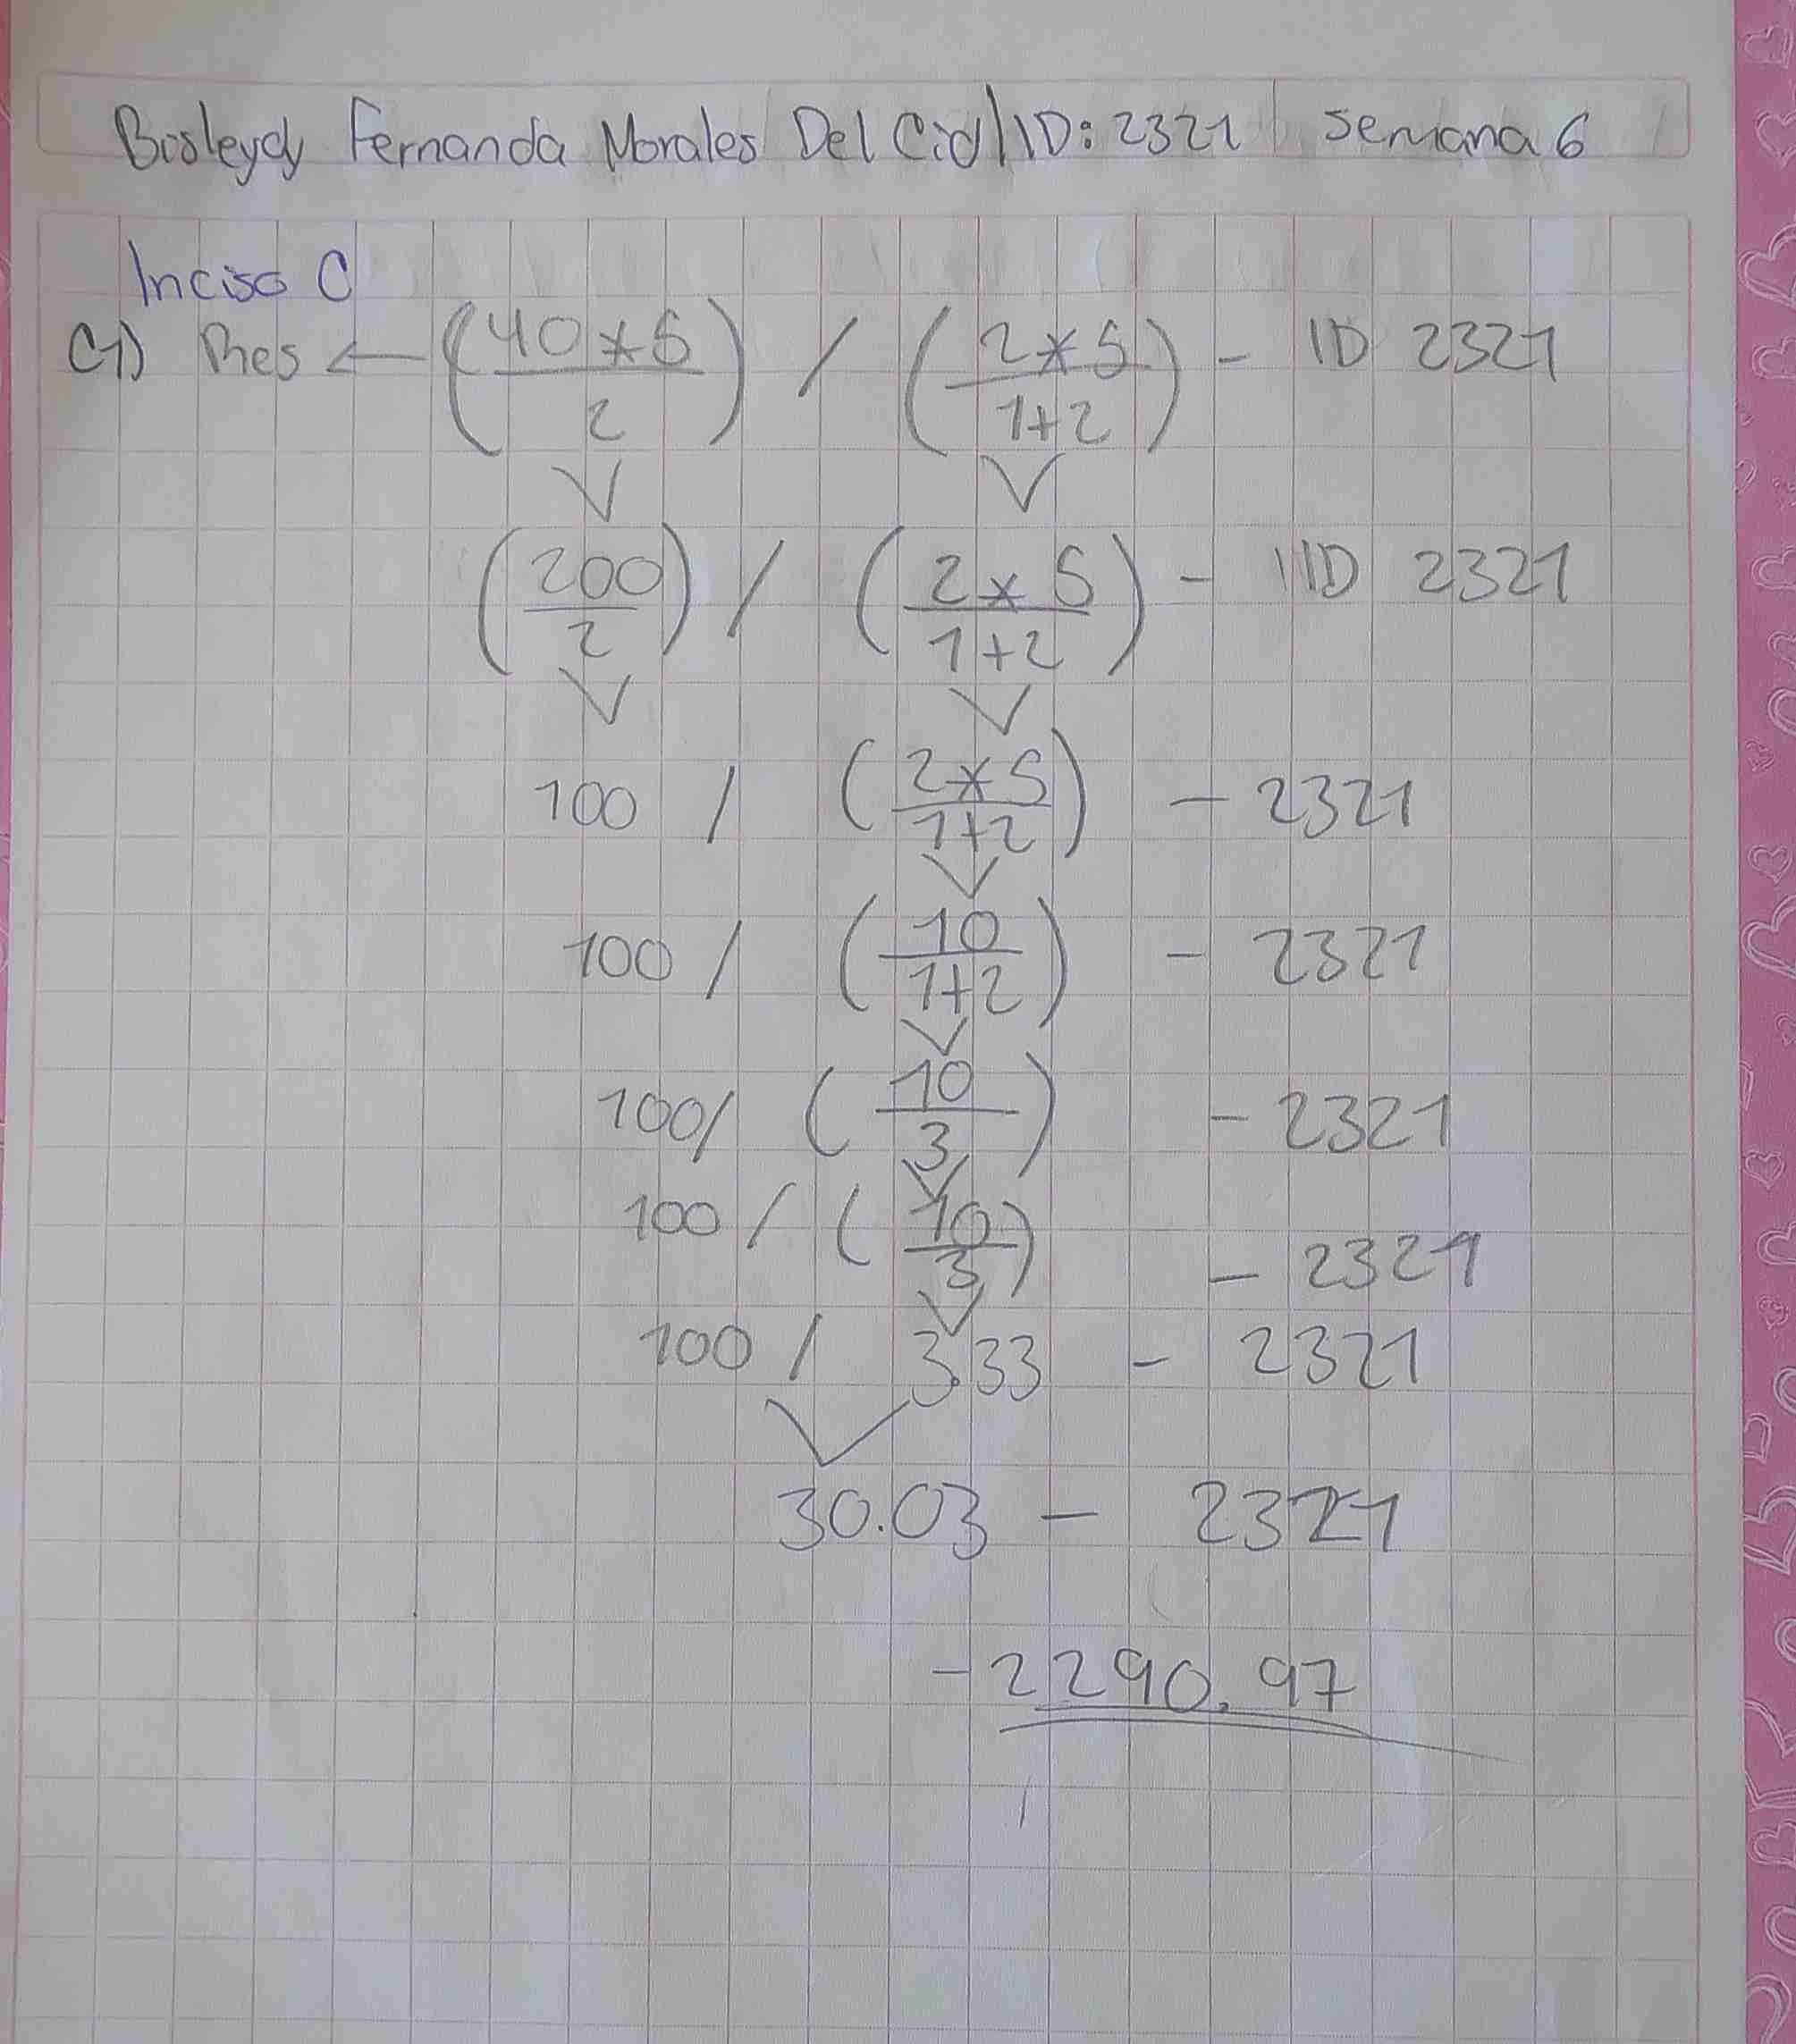 Bisleydy Fernanda Morales Del Cid | ID: 2321 | Semana 6
Inciso C
C1) Res ← (40 * 5 / 2) / (2 * 5 / 1+2) - ID 2321
(200 / 2) / (2 * 5 / 1+2) - ID 2321
100 / (2 * 5 / 1+2) - 2321
100 / (10 / 1+2) - 2321
100 / (10 / 3) - 2321
100 / (10 / 3) - 2321
100 / 3.33 - 2321
30.03 - 2321
-2290.97